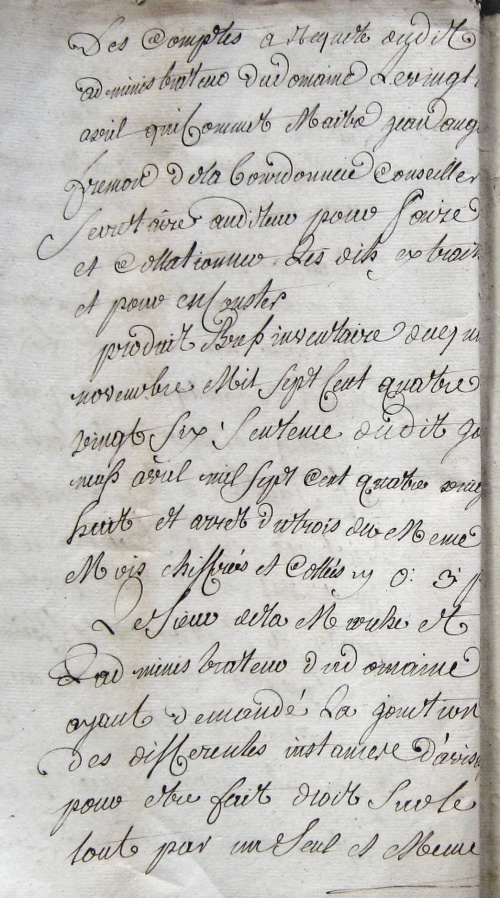 Des Comptes a Requete dudit
administrateur du domaine Le vingt
avril qui Commet Maitre jean ang
fremon de la Bourdonnaie Conseiller
Secretaire auditeur pour faire
et Collationner Les dits extraits
et pour en Conster
produit Bref inventaire du
novembre Mil Sept Cent quatre
vingt Six Sentence dudit
avril mil Sept Cent quatre vingt
huit et arret du trois du Meme
Mois chiffrés et Cottés O: 3:
Le Sieur de la Marche Et
L'administrateur du domaine
ayant demandé La jonction
des differentes instances
pour etre fait droit Sur le
tout par un Seul et Meme